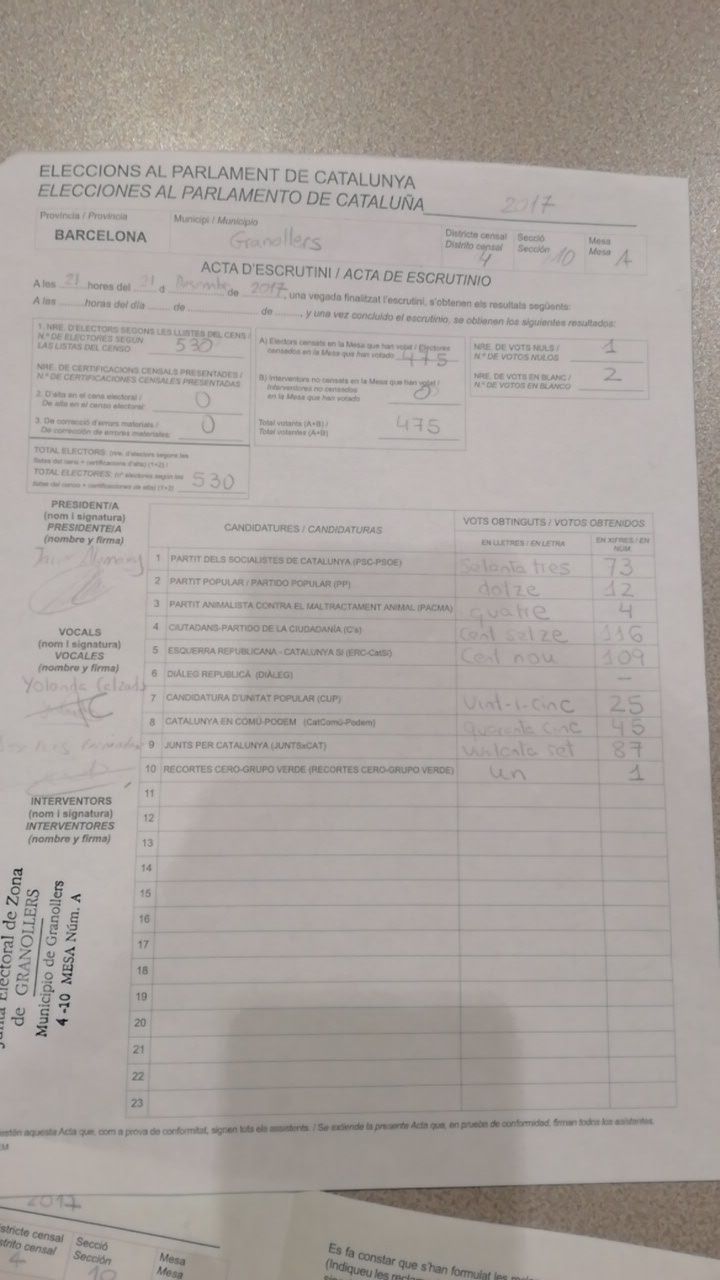 ELECCIONS AL PARLAMENT DE CATALUNYA
ELECCIONES AL PARLAMENTO DE CATALUÑA 2017
Província / Provincia
BARCELONA
Municipi / Municipio
Granollers
Districte censal
Distrito censal
4
Secció
Sección
10
Mesa
Mesa
A
ACTA D'ESCRUTINI / ACTA DE ESCRUTINIO
A les 21 hores del 21 d de 2017, una vegada finalitzat l'escrutini, s'obtenen els resultats següents:
A las ........ horas del día ........ de ........ de ........, y una vez concluido el escrutinio, se obtienen los siguientes resultados:
1. NRE. D'ELECTORS SEGONS LES LLISTES DEL CENS /
N.º DE ELECTORES SEGÚN
LAS LISTAS DEL CENSO 530
NRE. DE CERTIFICACIONS CENSALS PRESENTADES /
N.º DE CERTIFICACIONES CENSALES PRESENTADAS
2. D'alta en el cens electoral /
De alta en el censo electoral: 0
3. De correcció d'errors materials /
De corrección de errores materiales: 0
TOTAL ELECTORS: (nre. d'electors segons les
llistes del cens + certificacions d'alta) (1+2) /
TOTAL ELECTORES: (nº electores según las
listas del censo + certificaciones de alta) (1+2) 530
A) Electors censats en la Mesa que han votat / Electores
censados en la Mesa que han votado 475
B) Interventors no censats en la Mesa que han votat /
Interventores no censados
en la Mesa que han votado 0
Total votants (A+B) /
Total votantes (A+B) 475
NRE. DE VOTS NULS /
N.º DE VOTOS NULOS 1
NRE. DE VOTS EN BLANC /
N.º DE VOTOS EN BLANCO 2
PRESIDENT/A
(nom i signatura)
PRESIDENTE/A
(nombre y firma)
VOCALS
(nom i signatura)
VOCALES
(nombre y firma)
Yolanda
INTERVENTORS
(nom i signatura)
INTERVENTORES
(nombre y firma)
Electoral de Zona
de GRANOLLERS
Municipio de Granollers
4 -10 MESA Núm. A
CANDIDATURES / CANDIDATURAS
VOTS OBTINGUTS / VOTOS OBTENIDOS
EN LLETRES / EN LETRA
EN XIFRES / EN NÚM.
1 PARTIT DELS SOCIALISTES DE CATALUNYA (PSC-PSOE) Setanta tres 73
2 PARTIT POPULAR / PARTIDO POPULAR (PP) dotze 12
3 PARTIT ANIMALISTA CONTRA EL MALTRACTAMENT ANIMAL (PACMA) quatre 4
4 CIUTADANS-PARTIDO DE LA CIUDADANÍA (C's) Cent setze 116
5 ESQUERRA REPUBLICANA - CATALUNYA SÍ (ERC-CatSí) Cent nou 109
6 DIÀLEG REPUBLICÀ (DIÀLEG) –
7 CANDIDATURA D'UNITAT POPULAR (CUP) Vint-i-cinc 25
8 CATALUNYA EN COMÚ-PODEM (CatComú-Podem) quaranta cinc 45
9 JUNTS PER CATALUNYA (JUNTSxCAT) set 87
10 RECORTES CERO-GRUPO VERDE (RECORTES CERO-GRUPO VERDE) un 1
11
12
13
14
15
16
17
18
19
20
21
22
23
aquesta Acta que, com a prova de conformitat, signen tots els assistents. / Se extiende la presente Acta que, en prueba de conformidad, firman todos los asistentes.
2017
Districte censal
Distrito censal
4
Secció
Sección
10
Mesa
Mesa
Es fa constar que s'han formulat les
(Indiqueu les